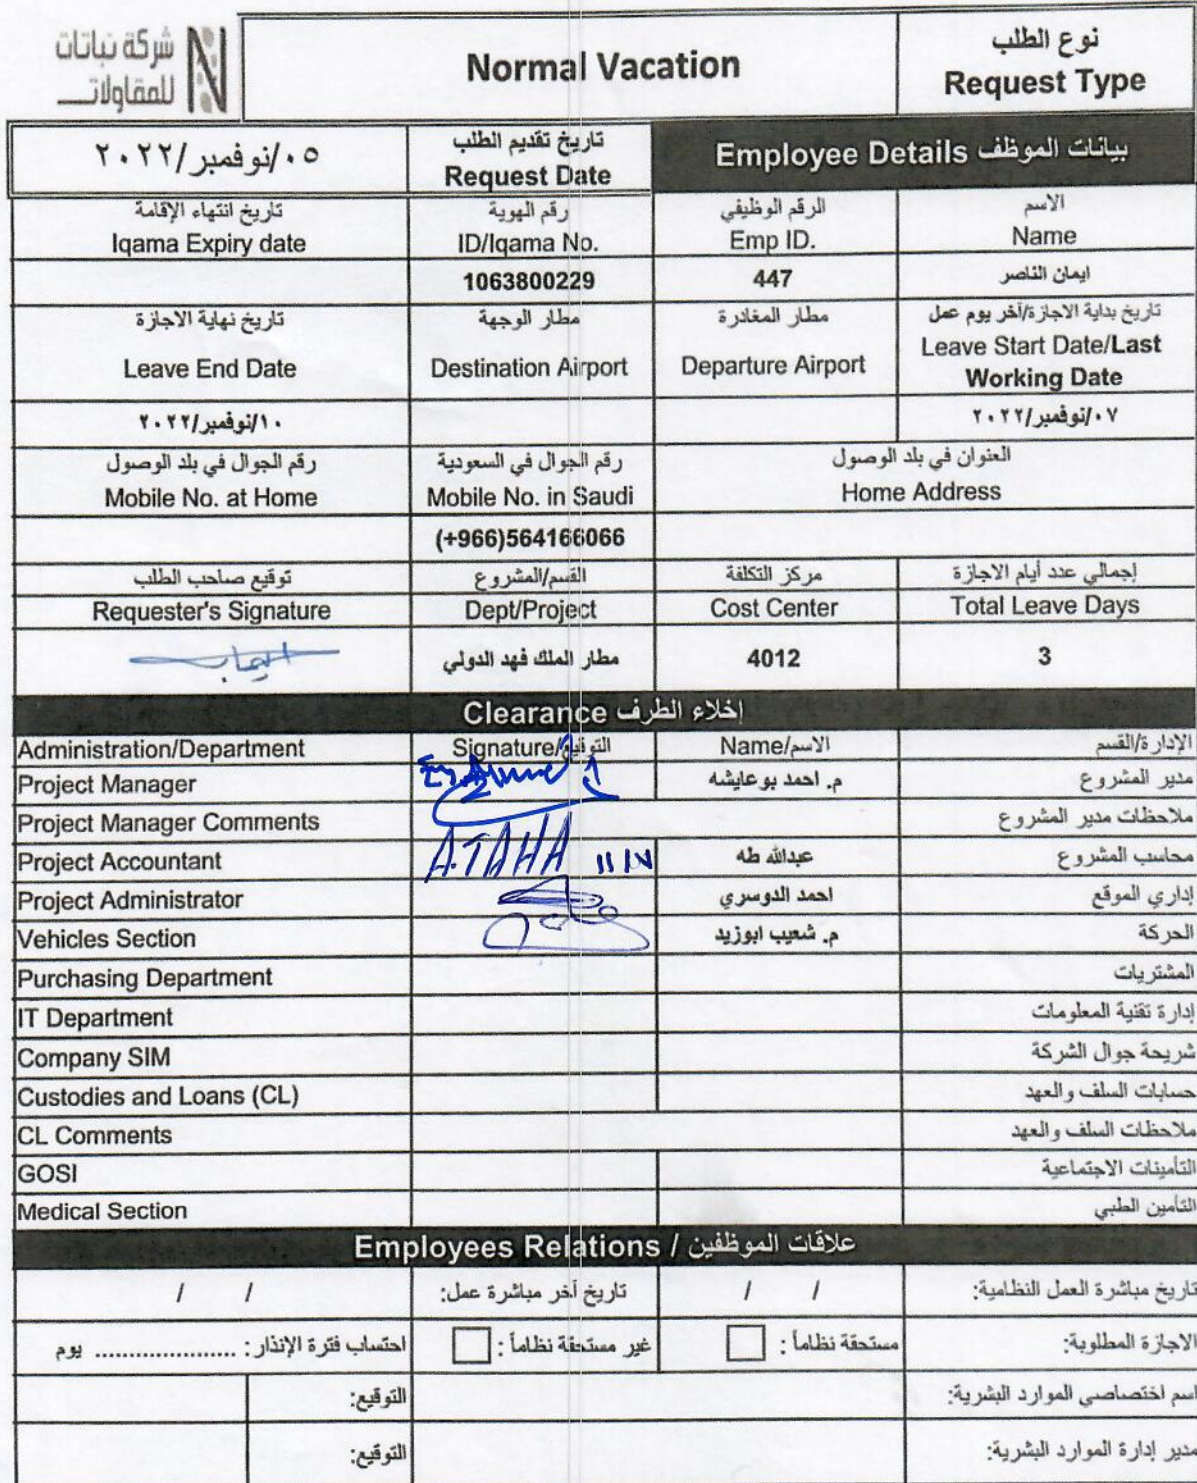 شركة نباتات
للمقاولات
Normal Vacation
نوع الطلب
Request Type
٠٥/نوفمبر/٢٠٢٢
تاريخ تقديم الطلب
Request Date
بيانات الموظف Employee Details
تاريخ انتهاء الإقامة
Iqama Expiry date
رقم الهوية
ID/Iqama No.
الرقم الوظيفي
Emp ID.
الاسم
Name
1063800229
447
ايمان الناصر
تاريخ نهاية الاجازة
Leave End Date
مطار الوجهة
Destination Airport
مطار المغادرة
Departure Airport
تاريخ بداية الاجازة/آخر يوم عمل
Leave Start Date/Last
Working Date
١٠/نوفمبر/٢٠٢٢
٠٧/نوفمبر/٢٠٢٢
رقم الجوال في بلد الوصول
Mobile No. at Home
رقم الجوال في السعودية
Mobile No. in Saudi
العنوان في بلد الوصول
Home Address
(+966)564166066
توقيع صاحب الطلب
Requester's Signature
القسم/المشروع
Dept/Project
مركز التكلفة
Cost Center
إجمالي عدد أيام الاجازة
Total Leave Days
مطار الملك فهد الدولي
4012
3
إخلاء الطرف Clearance
Administration/Department
Signature/التوقيع
Name/الاسم
الإدارة/القسم
Project Manager
م. احمد بوعايشه
مدير المشروع
Project Manager Comments
ملاحظات مدير المشروع
Project Accountant
A.TAHA
عبدالله طه
محاسب المشروع
Project Administrator
احمد الدوسري
إداري الموقع
Vehicles Section
م. شعيب ابوزيد
الحركة
Purchasing Department
المشتريات
IT Department
إدارة تقنية المعلومات
Company SIM
شريحة جوال الشركة
Custodies and Loans (CL)
حسابات السلف والعهد
CL Comments
ملاحظات السلف والعهد
GOSI
التأمينات الاجتماعية
Medical Section
التأمين الطبي
علاقات الموظفين / Employees Relations
تاريخ مباشرة العمل النظامية:
/ /
تاريخ آخر مباشرة عمل:
/ /
الاجازة المطلوبة:
مستحقة نظاماً :
غير مستحقة نظاماً :
احتساب فترة الإنذار : ..................... يوم
اسم اختصاصي الموارد البشرية:
التوقيع:
مدير إدارة الموارد البشرية:
التوقيع: